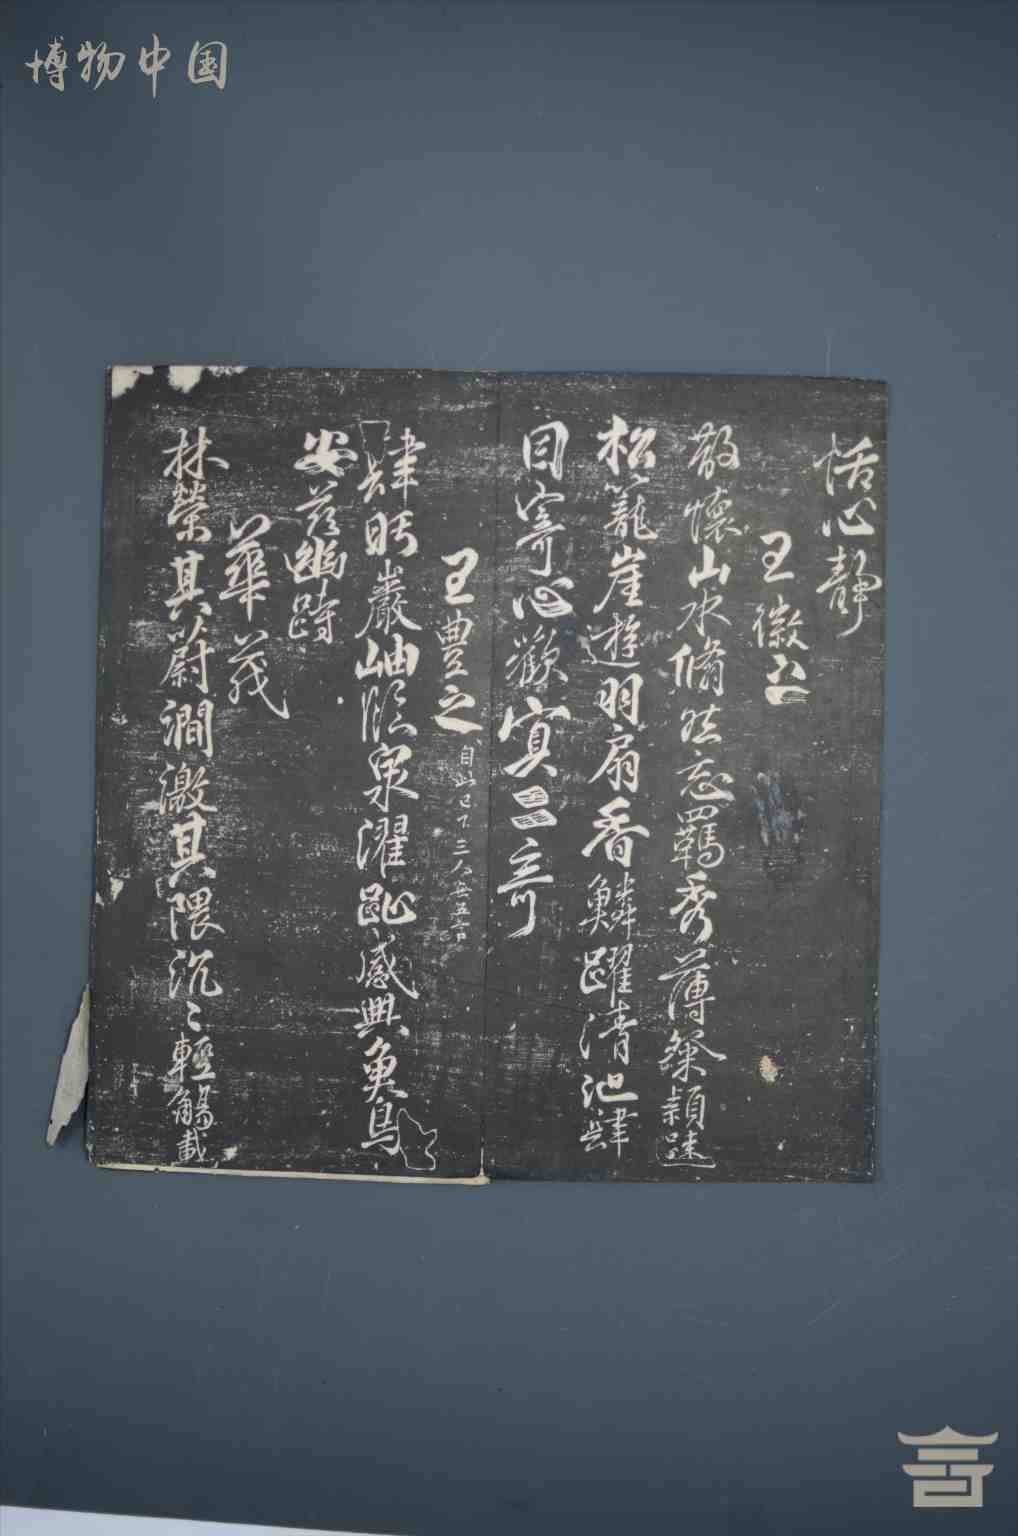 博物中国
恬心靜
王徽之
散懷山水翛然忘羈秀薄粲穎踈
松籠崖遊羽扇香鱗躍清池肆
目寄心歡冥二奇
王豊之 自此已下三人無五言
肆眄巖岫臨泉濯趾感興魚鳥
安茲幽跱
華茂
林榮其蔚澗激其隈汎〻輕觴載